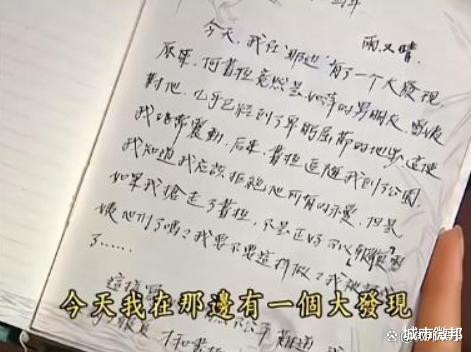 雨又晴.
今天,我在"那边"有了一个大發現
原來,何書桓竟然是如萍的男朋友.雪姨
對他,几乎已經到了卑躬屈節的地步,這使
我暗暗震動,后來,書桓追隨我到了公園
我知道我應該拒絕他所有的示愛,但是
如果我搶走了書桓,不是正好可以"報復"雪
姨他们了嗎?我要不要這样做?我被
了……
這樣
今天我在那邊有一個大發現
城市微邦